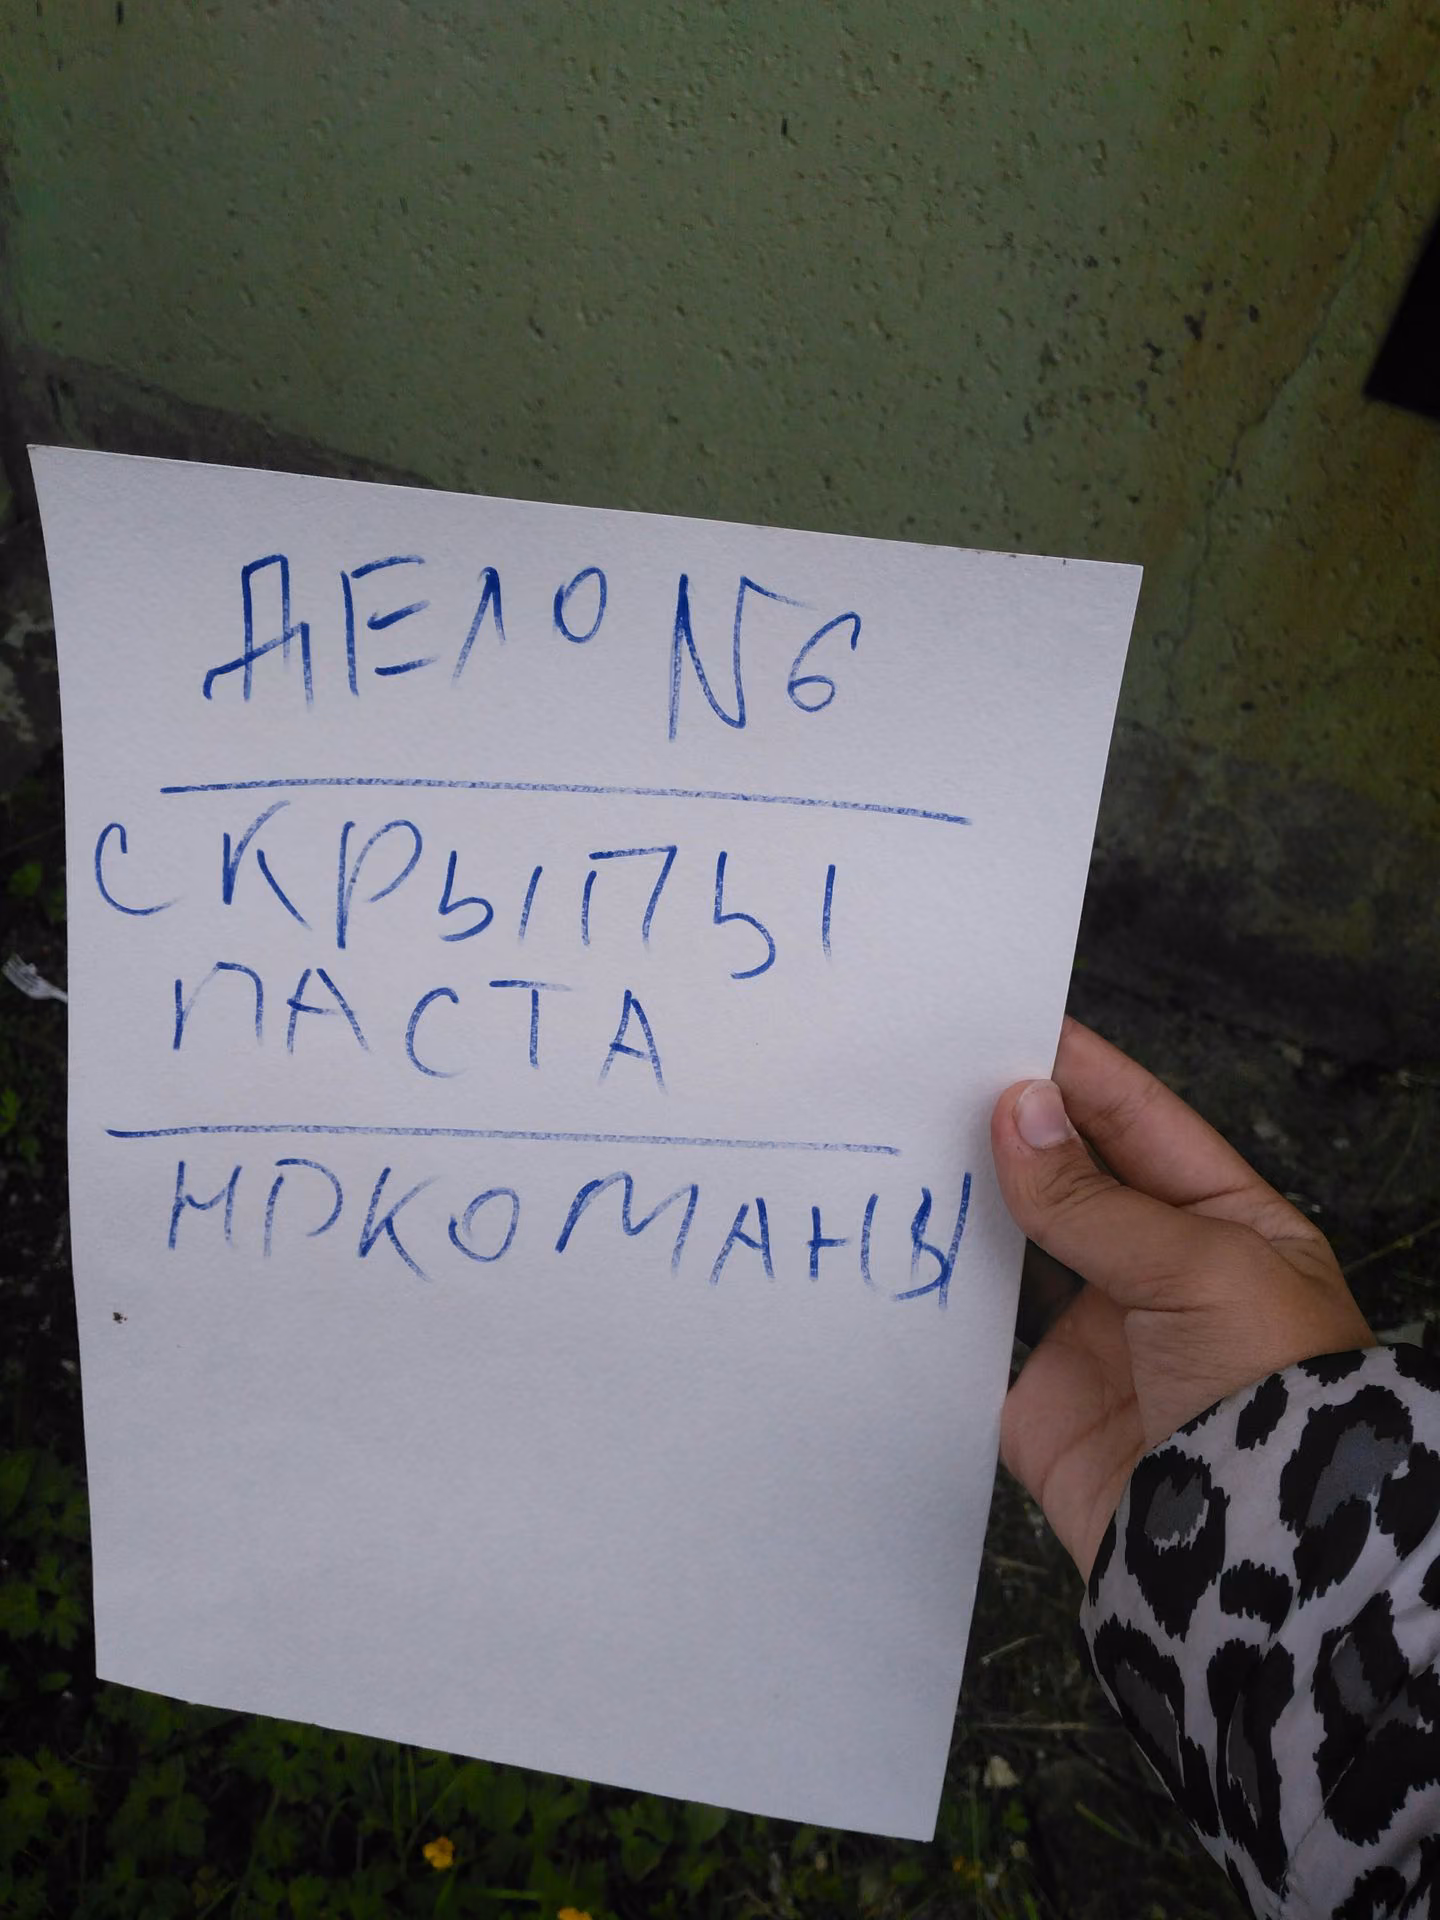 ДЕЛО N6
СКРЫПЫ
ПАСТА
НРКОМАНЫ